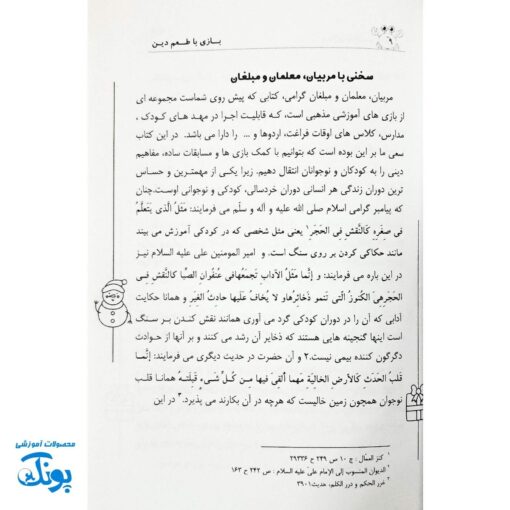 بازی با طعم دین
۹
سخنی با مربیان، معلمان و مبلغان
مربیان، معلمان و مبلغان گرامی، کتابی که پیش روی شماست مجموعه ای
از بازی های آموزشی مذهبی است، که قابلیت اجرا در مهد های کودک ,
مدارس، کلاس های اوقات فراغت، اردوها و ... را دارا می باشد. در این کتاب
سعی ما بر این بوده است که بتوانیم با کمک بازی ها و مسابقات ساده، مفاهیم
دینی را به کودکان و نوجوانان انتقال دهیم. زیرا یکی از مهمترین و حساس
ترین دوران زندگی هر انسانی دوران خردسالی، کودکی و نوجوانی اوست.چنان
که پیامبر گرامی اسلام صلی الله علیه و آله و سلّم می فرمایند: مَثلُ الّذي يَتَعلَّمُ
في صِغَرِهِ كَالنَّقشِ فِي الحَجَرِ۱ یعنی مثل شخصی که در کودکی آموزش می بیند
مانند حکاکی کردن بر روی سنگ است . و امیر المومنین علی علیه السلام نیز
در این باره می فرمایند: و إنَّما مَثَلُ الآدابِ تَجمَعُهافي عُنفُوانِ الصِّبا كالنَّقشِ فِي
الحَجَرِهيَ الكُنوزُ الَّتي تَنمو ذَخائِرُها و لا يُخافُ عَلَيها حادثُ الغِيَرِ و همانا حکایت
آدابی که آن را در دوران کودکی گرد می آوری همانند نقش کندن بر سنگ
است اینها گنجینه هایی هستند که ذخایر آن رشد می کنند و بر آنها از حوادث
دگرگون کننده بیمی نیست.۲ و آن حضرت در حدیث دیگری می فرمایند: إنَّما
قَلبُ الحَدَثِ كَالأرضِ الخالِيَةِ مَهما أُلقِيَ فيها مِن كُلِّ شَيءٍ قَبِلَتهُ همانا قلب
نوجوان همچون زمین خالیست که هرچه در آن بکارند می پذیرد.۳ در این
۱ کنز العمّال : ج ۱۰ ص ۲۴۹ ح ۲۹۳۳۶
۲ الدیوان المنسوب إلی الإمام علیّ علیه السلام : ص ۲۴۲ ح ۱۶۳
۳ غرر الحکم و درر الکلم، حدیث۳۹۰۱
محصولات آموزشی
پونک